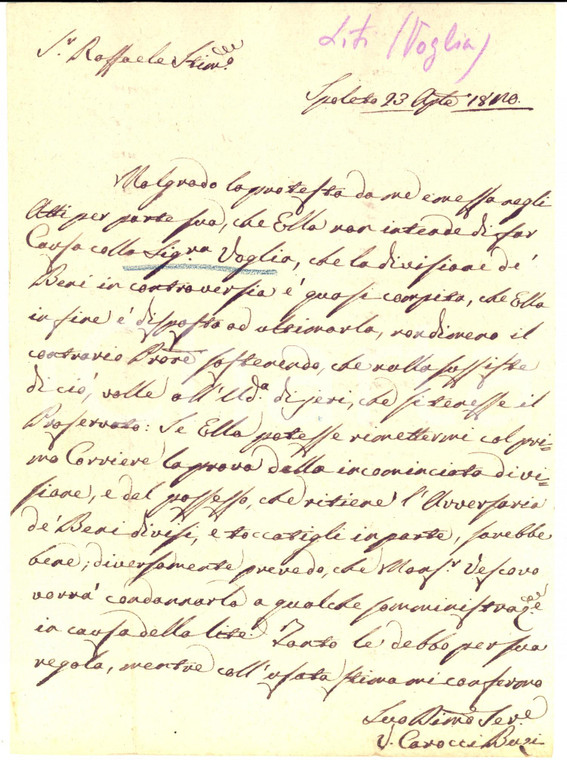 Liti (Voglia)
Sr. Raffaele Stimo.
Spoleto 23 Agte 1840.
Malgrado la protesta da me emessa negli
Atti per parte sua, che Ella non intende di far
Causa colla Sigra. Voglia, che la divisione de'
Beni in controversia é quasi compita, che Ella
in fine é disposta ad ultimarla, nondimeno il
contrario Prore sostenendo, che nulla sussiste
di ciò, volle all'Uda. di jeri, che si tenesse il
Proservato: Se Ella potesse rimettermi col pri=
mo Corriere la prova della incominciata divi=
sione, e del possesso, che ritiene l'Avversaria
de' Beni divisi, e toccatigli in parte, sarebbe
bene; diversamente prevedo, che Monsr. Vescovo
vorrà condannarla a qualche somministrazne
in causa della lite. Tanto le debbo per sua
regola, mentre coll'usata stima mi confermo
Suo Dimo Serve
V. Carocci Buzi